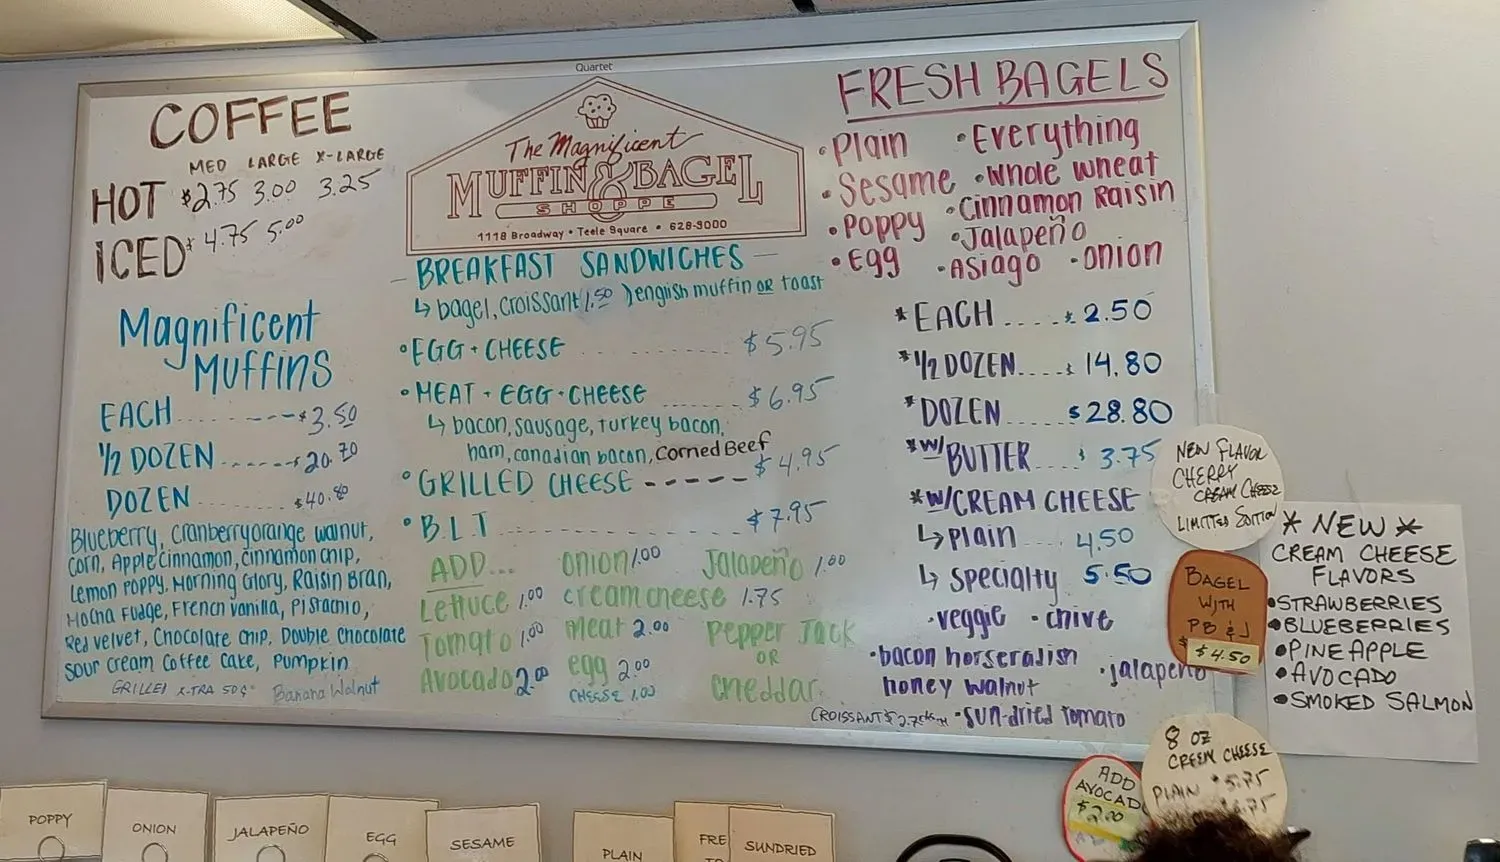 Quartet
COFFEE
MED LARGE X-LARGE
HOT $2.75 3.00 3.25
ICED $4.75 5.00
Magnificent
Muffins
EACH $3.50
1/2 DOZEN $20.70
DOZEN $40.80
Blueberry, Cranberry orange walnut,
corn, Apple cinnamon, cinnamon chip,
Lemon Poppy, Morning Glory, Raisin Bran,
Mocha Fudge, French vanilla, Pistachio,
Red velvet, Chocolate Chip, Double Chocolate
Sour Cream Coffee Cake, Pumpkin
GRILLED X-TRA 50¢ Banana Walnut
The Magnificent
MUFFIN & BAGEL
SHOPPE
1118 Broadway • Teele Square • 628-9000
- BREAKFAST SANDWICHES -
↳ bagel, croissant 1.50 ) english muffin OR toast
• EGG + CHEESE $5.95
• MEAT + EGG + CHEESE $6.95
↳ bacon, sausage, turkey bacon,
ham, canadian bacon, Corned Beef
• GRILLED CHEESE $4.95
• B.L.T $7.95
ADD... onion 1.00 Jalapeño 1.00
Lettuce 1.00 cream cheese 1.75
Tomato 1.00 meat 2.00 Pepper Jack
OR
Avocado 2.00 egg 2.00 cheddar
CHEESE 1.00
FRESH BAGELS
• Plain • Everything
• Sesame • Whole Wheat
• Poppy • Cinnamon Raisin
• Egg • Jalapeño
• Asiago • Onion
* EACH .... $2.50
* 1/2 DOZEN .... $14.80
* DOZEN .... $28.80
* W/ BUTTER .... $3.75
* W/CREAM CHEESE
↳ Plain ... 4.50
↳ Specialty 5.50
• veggie • chive
• bacon horseradish • jalapeño
honey walnut
• sun-dried tomato
CROISSANT $2.75
NEW FLAVOR
CHERRY
CREAM CHEESE
LIMITED EDITION
BAGEL
WITH
PB & J
$4.50
* NEW *
CREAM CHEESE
FLAVORS
• STRAWBERRIES
• BLUEBERRIES
• PINEAPPLE
• AVOCADO
• SMOKED SALMON
8 OZ
CREAM CHEESE
PLAIN $5.75
ADD
AVOCADO
$2.00
POPPY
ONION
JALAPEÑO
EGG
SESAME
PLAIN
FRE
SUNDRIED